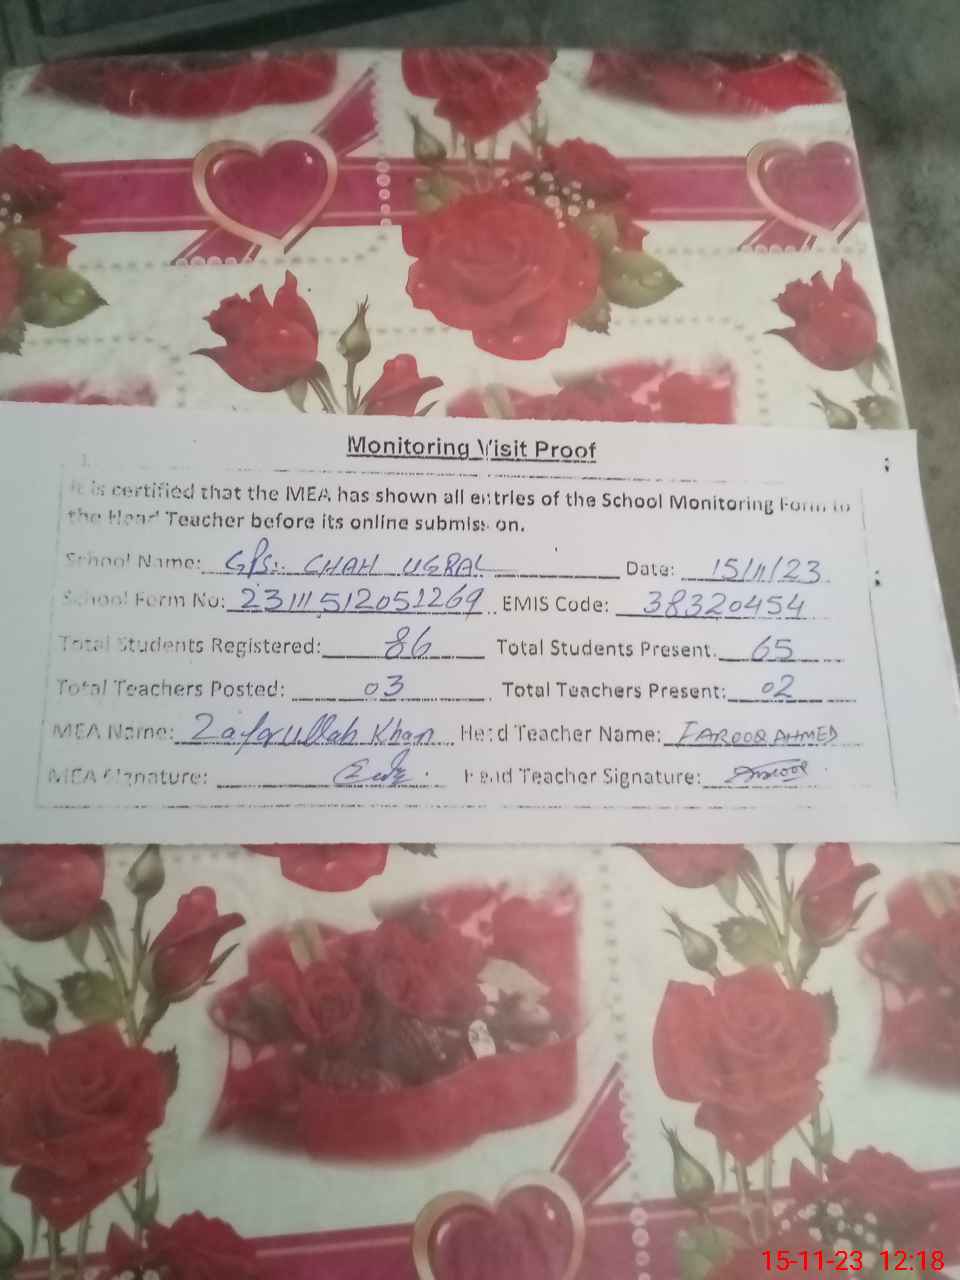 Monitoring Visit Proof
It is certified that the MEA has shown all entries of the School Monitoring Form to
the Head Teacher before its online submission.
School Name: GPS. CHAH UGRAL Date: 15/11/23
School Form No: 23111512051269 EMIS Code: 38320454
Total Students Registered: 86 Total Students Present. 65
Total Teachers Posted: 03 Total Teachers Present: 02
MEA Name: Zafarullah Khan Head Teacher Name: FAROOQ AHMED
MEA Signature: Head Teacher Signature: Farooq
15-11-23 12:18